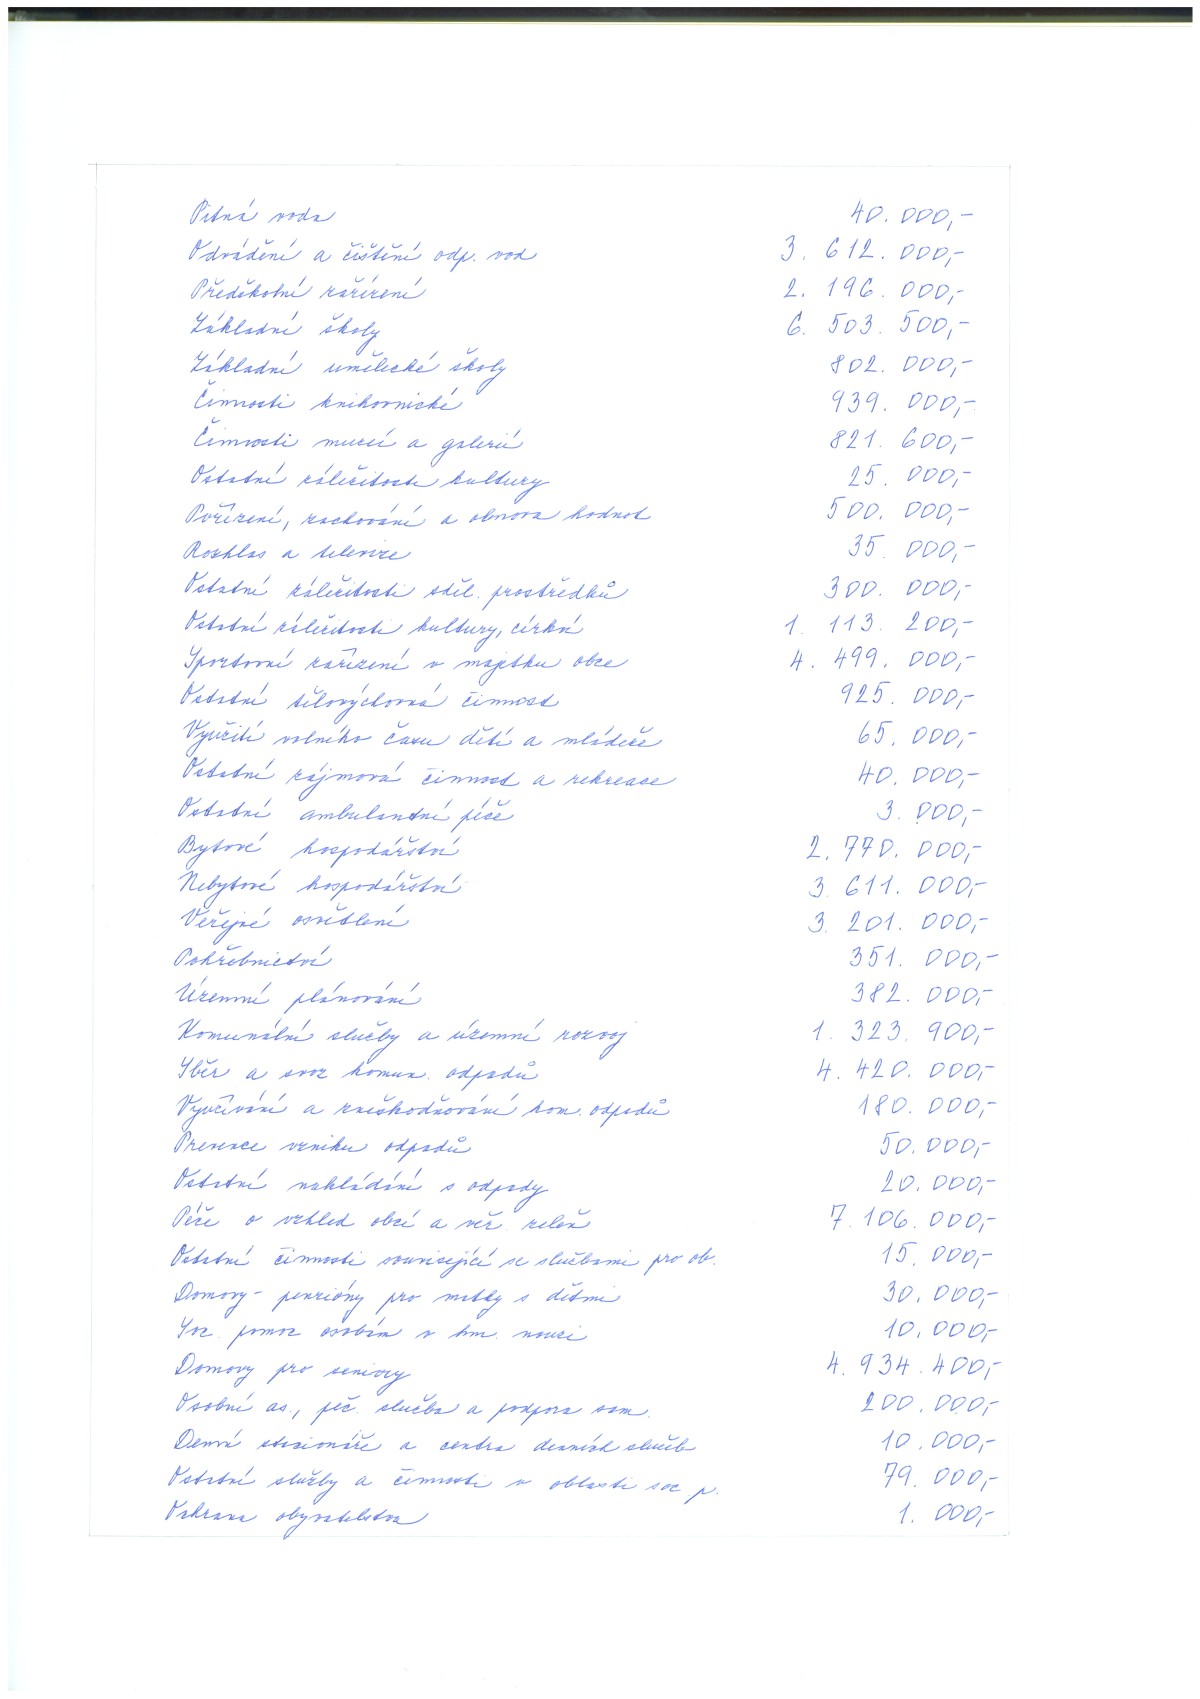 Pitná voda 40.000,-
Odvádění a čištění odp. vod 3.612.000,-
Předškolní zařízení 2.196.000,-
Základní školy 6.503.500,-
Základní umělecké školy 802.000,-
Činnosti knihovnické 939.000,-
Činnosti muzeí a galerií 821.600,-
Ostatní záležitosti kultury 25.000,-
Pořízení, zachování a obnova hodnot 500.000,-
Rozhlas a televize 35.000,-
Ostatní záležitosti sděl. prostředků 300.000,-
Ostatní záležitosti kultury, církví 1.113.200,-
Sportovní zařízení v majetku obce 4.499.000,-
Ostatní tělovýchovná činnost 925.000,-
Využití volného času dětí a mládeže 65.000,-
Ostatní zájmová činnost a rekreace 40.000,-
Ostatní ambulantní péče 3.000,-
Bytové hospodářství 2.770.000,-
Nebytové hospodářství 3.611.000,-
Veřejné osvětlení 3.201.000,-
Pohřebnictví 351.000,-
Územní plánování 382.000,-
Komunální služby a územní rozvoj 1.323.900,-
Sběr a svoz komun. odpadů 4.420.000,-
Využívání a zneškodňování kom. odpadů 180.000,-
Prevence vzniku odpadů 50.000,-
Ostatní nakládání s odpady 20.000,-
Péče o vzhled obcí a veř. zeleň 7.106.000,-
Ostatní činnosti související se službami pro ob. 15.000,-
Domovy-penzióny pro matky s dětmi 30.000,-
Soc. pomoc osobám v hm. nouzi 10.000,-
Domovy pro seniory 4.934.400,-
Osobní as., peč. služba a podpora sam. 200.000,-
Denní stacionáře a centra denních služeb 10.000,-
Ostatní služby a činnosti v oblasti soc. p. 79.000,-
Ochrana obyvatelstva 1.000,-